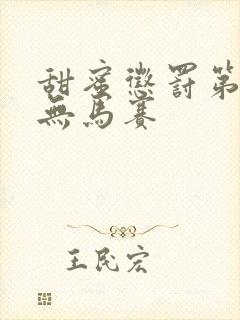 甜蜜懲罰第
無馬賽
王民宏